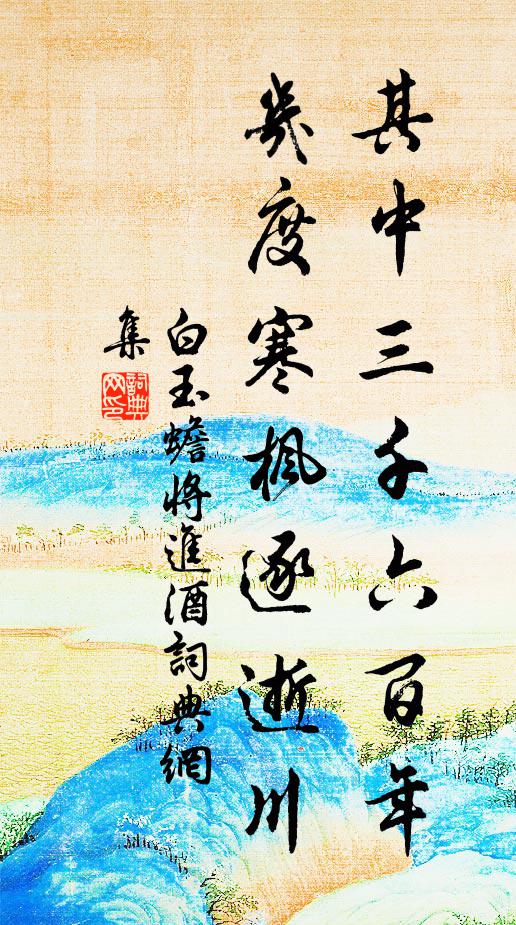 其中三千六百年
幾度寒楓逐逝川
白玉蟾將進酒詞典網
集
詞典網印